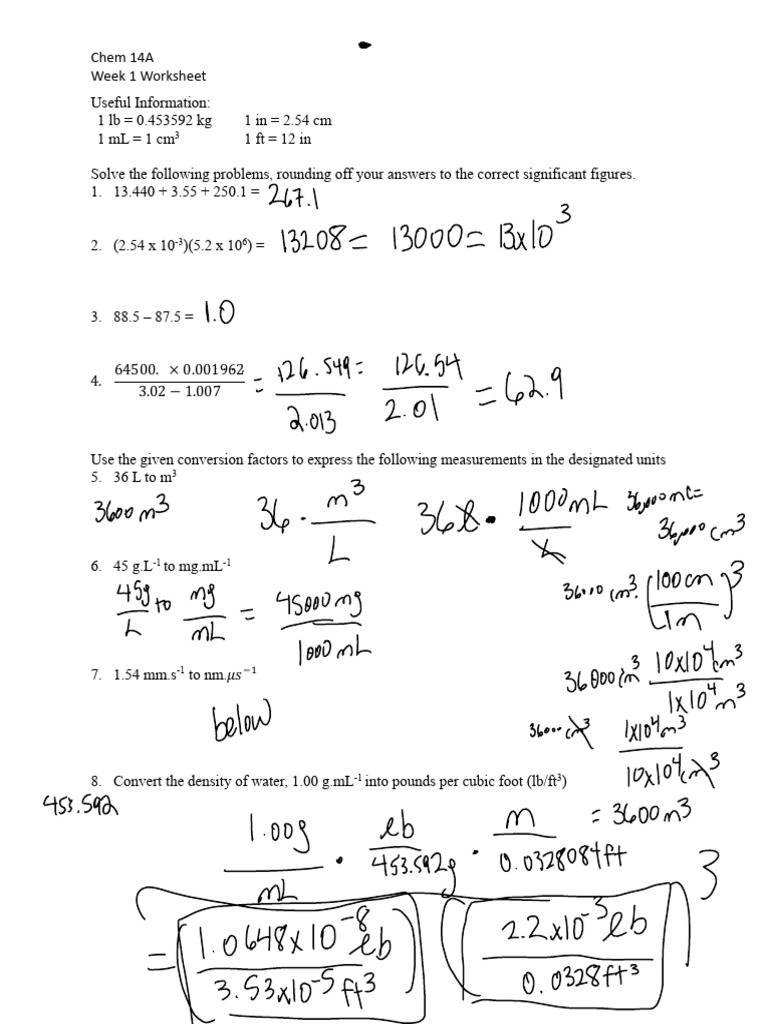 Chem 14A
Week 1 Worksheet
Useful Information:
1 lb = 0.453592 kg 1 in = 2.54 cm
1 mL = 1 cm³ 1 ft = 12 in
Solve the following problems, rounding off your answers to the correct significant figures.
1. 13.440 + 3.55 + 250.1 = 267.1
2. (2.54 x 10⁻³)(5.2 x 10⁶) = 13208 = 13000 = 13x10³
3. 88.5 – 87.5 = 1.0
4. 64500. × 0.001962 / 3.02 − 1.007 = 126.549 / 2.013 = 126.54 / 2.01 = 62.9
Use the given conversion factors to express the following measurements in the designated units
5. 36 L to m³
3600 m³ 36 · m³ / L 36 L · 1000 mL / L 36,000 mL =
36,000 cm³
6. 45 g.L⁻¹ to mg.mL⁻¹
45g / L to mg / mL = 45000 mg / 1000 mL
36000 cm³ · (100 cm / 1m)³
7. 1.54 mm.s⁻¹ to nm.μs⁻¹
below
36000 cm³ 10x10⁴ cm³ / 1x10⁴ m³
36000 cm³ 1x10⁴ m³ / 10x10⁴ cm³
8. Convert the density of water, 1.00 g.mL⁻¹ into pounds per cubic foot (lb/ft³)
453.592
= 3600 m³
1.00g / mL · lb / 453.592g · m / 0.0328084ft
= (1.0648x10⁻⁸ lb / 3.53x10⁻⁵ ft³) (2.2x10⁻³ lb / 0.0328 ft³) 3